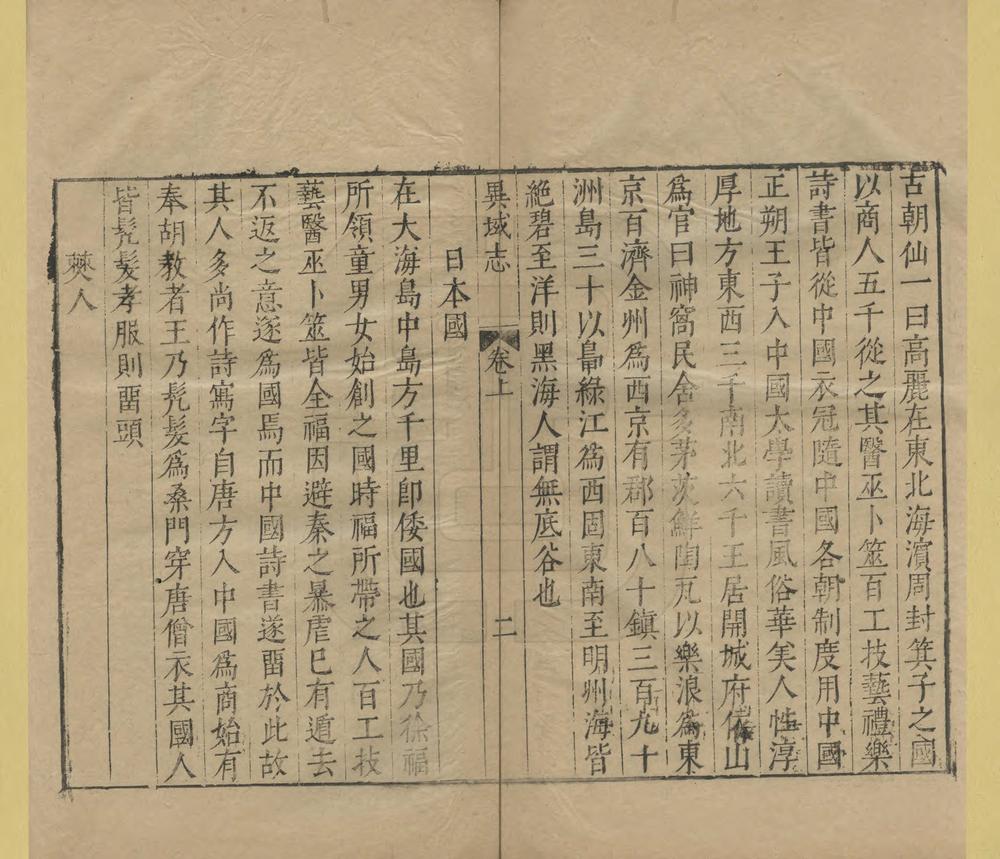 古朝仙一曰高麗在東北海濱周封箕子之國
以商人五千從之其醫巫卜筮百工技藝禮樂
詩書皆從中國衣冠隨中國各朝制度用中國
正朔王子入中國太學讀書風俗華美人性淳
厚地方東西三千南北六千王居開城府依山
爲官曰神窩民舍多茅茨鮮陶瓦以樂浪爲東
京百濟金州爲西京有郡百八十鎮三百九十
洲島三十以鼂綠江爲西固東南至明州海皆
絶碧至洋則黑海人謂無底谷也
異域志 卷上 二
日本國
在大海島中島方千里卽倭國也其國乃徐福
所領童男女始創之國時福所帶之人百工技
藝醫巫卜筮皆全福因避秦之暴虐已有遁去
不返之意遂爲國焉而中國詩書遂畱於此故
其人多尚作詩寫字自唐方入中國爲商始有
奉胡教者王乃髡髮爲桑門穿唐僧衣其國人
皆髡髮孝服則畱頭
㷼人